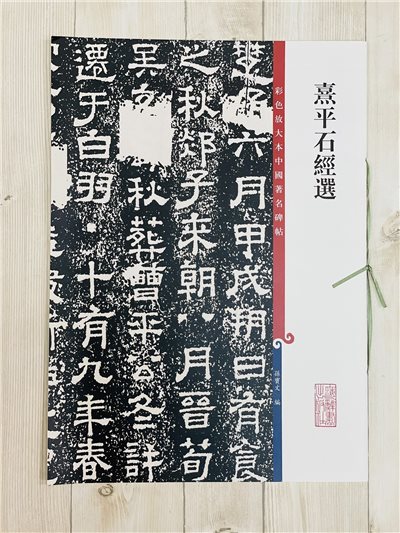 熹平石經選
彩色放大本中國著名碑帖
孫寶文 編
六月甲戌朔日有食
之秋郯子來朝八月晉荀
吳 秋葬曹平公冬許
遷于白羽·十有九年春